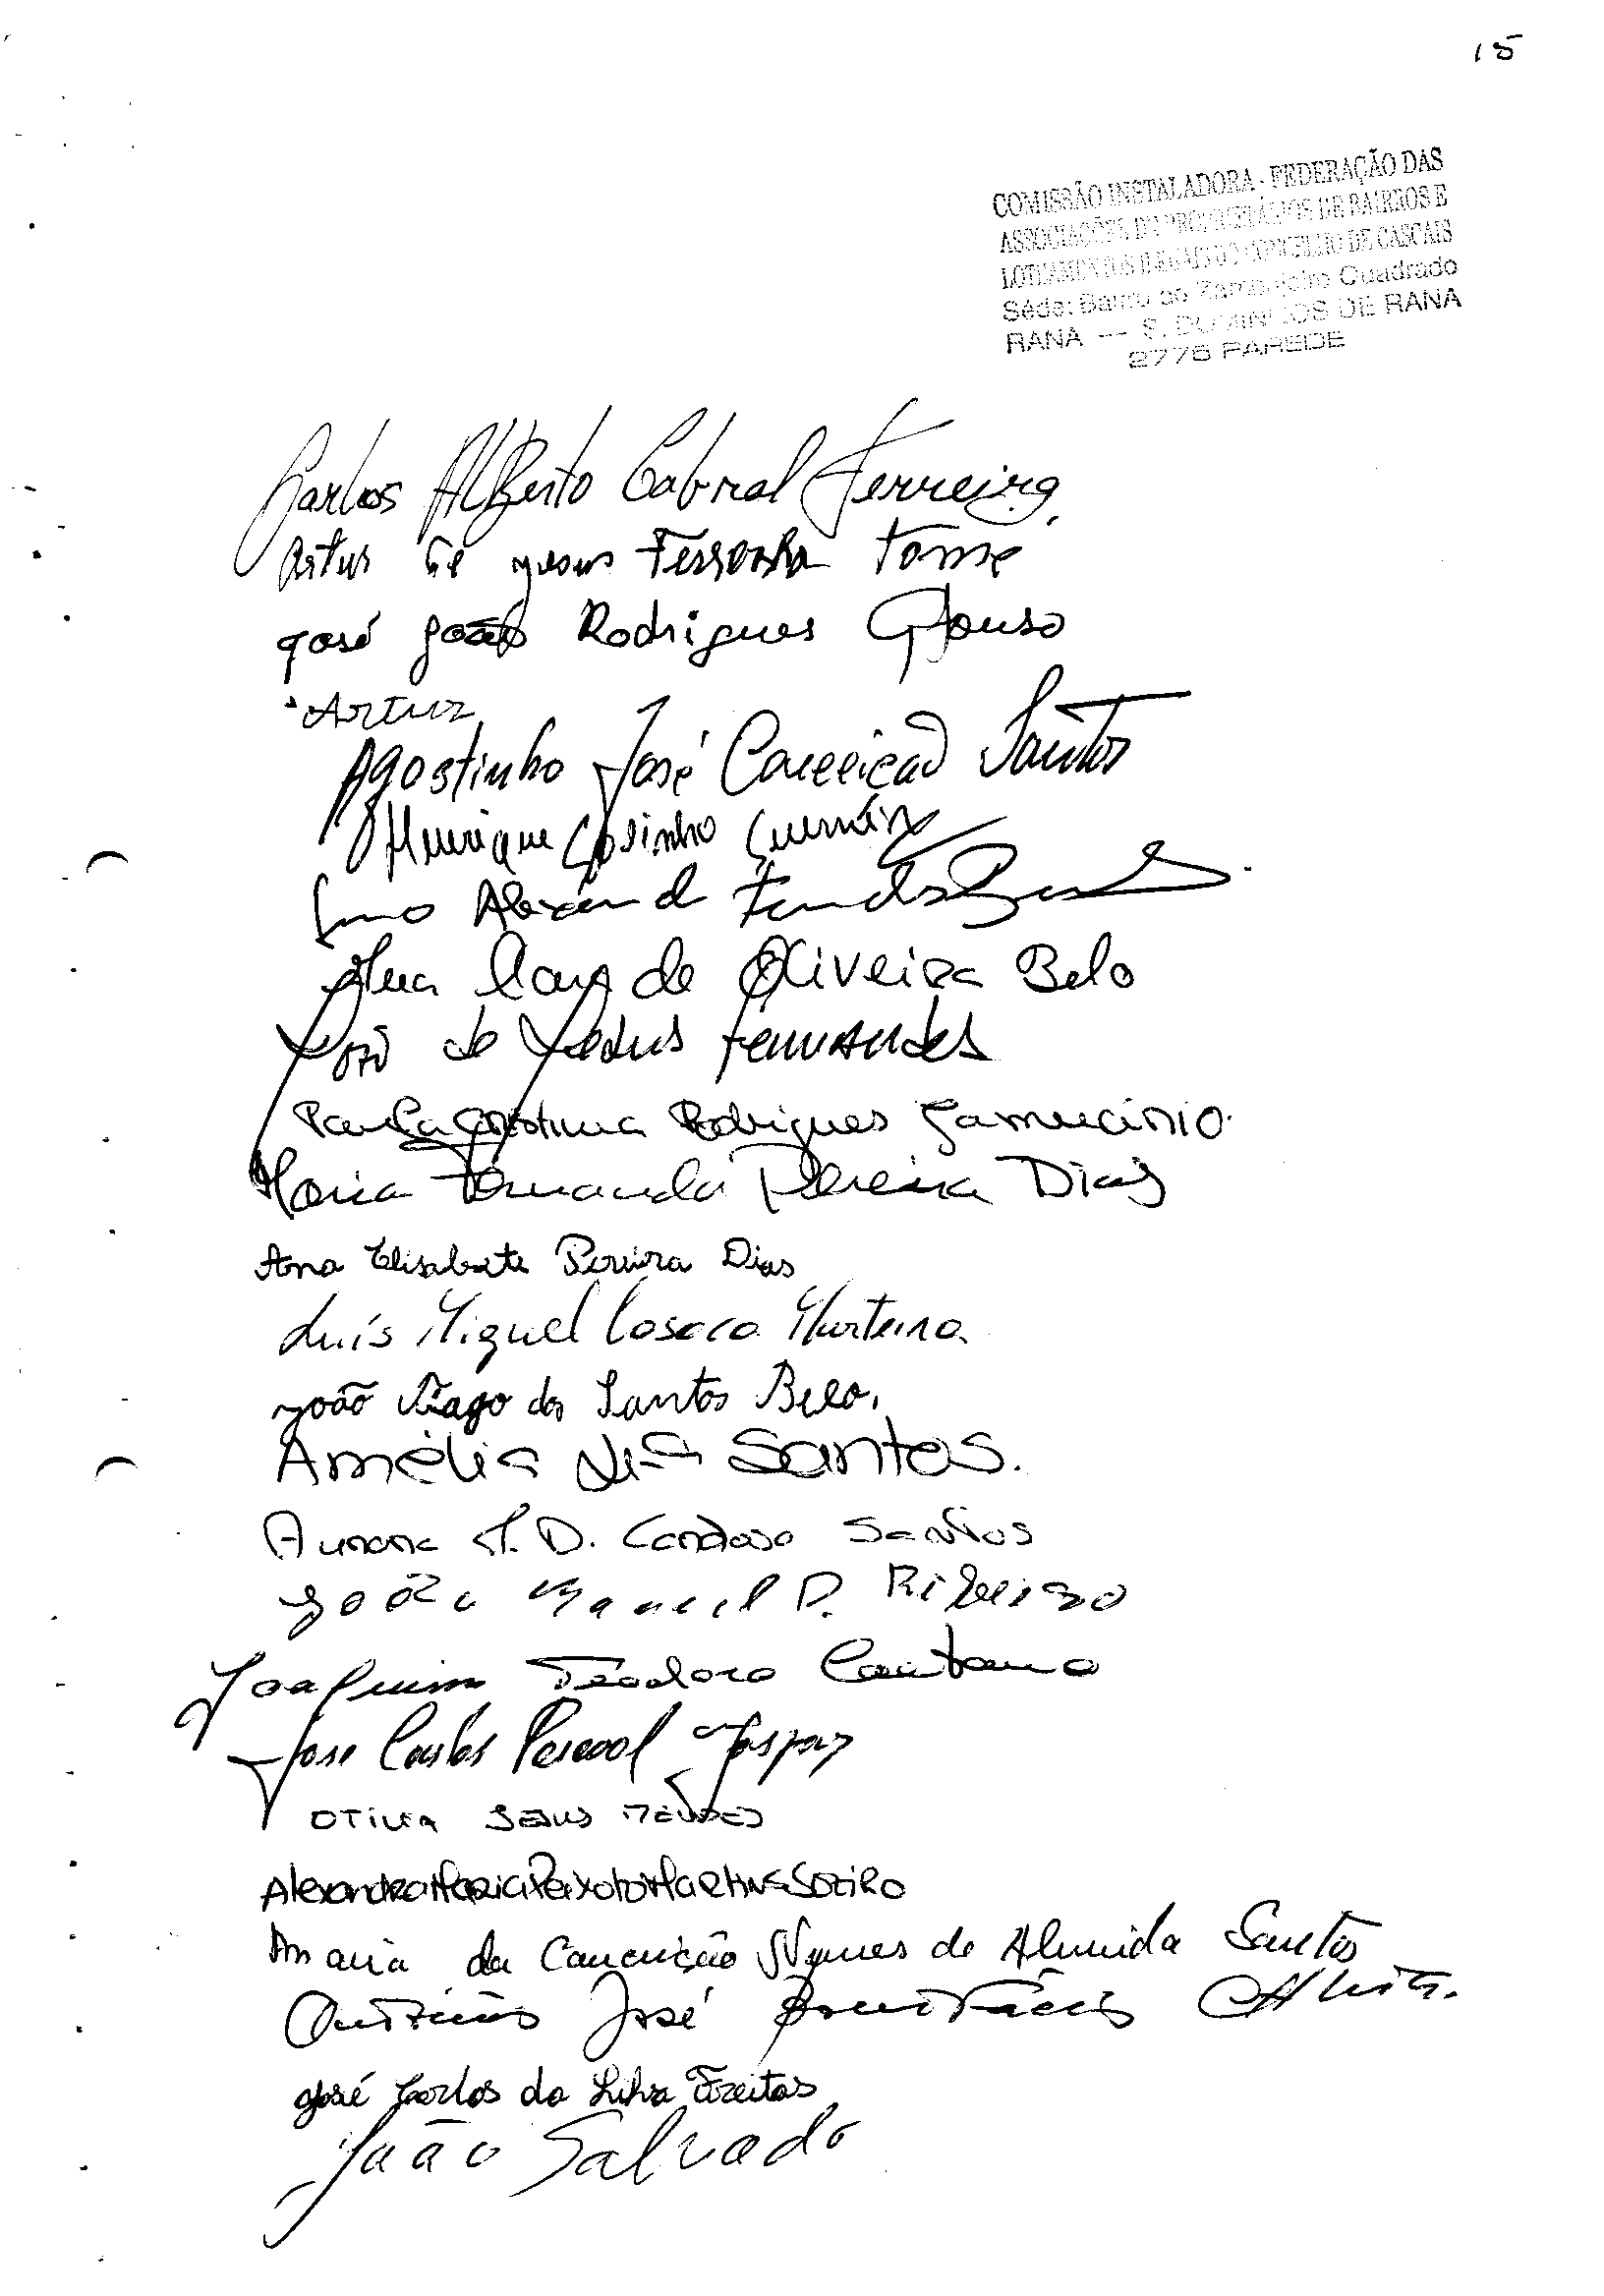 15
COMISSÃO INSTALADORA - FEDERAÇÃO DAS
ASSOCIAÇÕES DE PROPRIETÁRIOS DE BAIRROS E
LOTEAMENTOS ILEGAIS DO CONCELHO DE CASCAIS
Séde: Bairro do Zambujeiro Quadrado
RANA — S. DOMINGOS DE RANA
2775 PAREDE
Carlos Alberto Cabral Ferreira
Artur de Jesus Tomé
José João Rodrigues Afonso
Artur
Agostinho José Conceição Santos
Henrique
Ana de Oliveira Belo
José de Jesus Fernandes
Paula Cristina Rodrigues
Maria Fernanda Pereira Dias
Ana Elisabete Pereira Dias
Luís Miguel Casaca Murteira
João Tiago dos Santos Belo.
Amélia Santos.
Aurora D. Cardoso Santos
João Manuel D. Ribeiro
Joaquim Teodoro Caetano
José Carlos Pascoal Gaspar
OTILIA JESUS MENDES
Alexandra Maria Peixoto Martins Soeiro
Maria da Conceição Nunes de Almeida Santos
António José Bonifácio
José Carlos da Silva Freitas
João Salvado